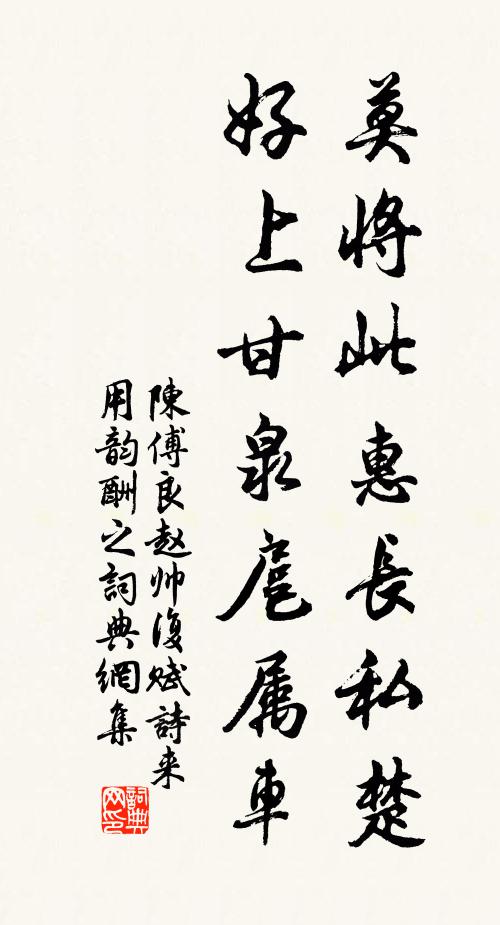 莫將此惠長私楚
好上甘泉扈属車
陳傅良赵帅復赋詩来
用韵酬之詞典網集
詞典网印